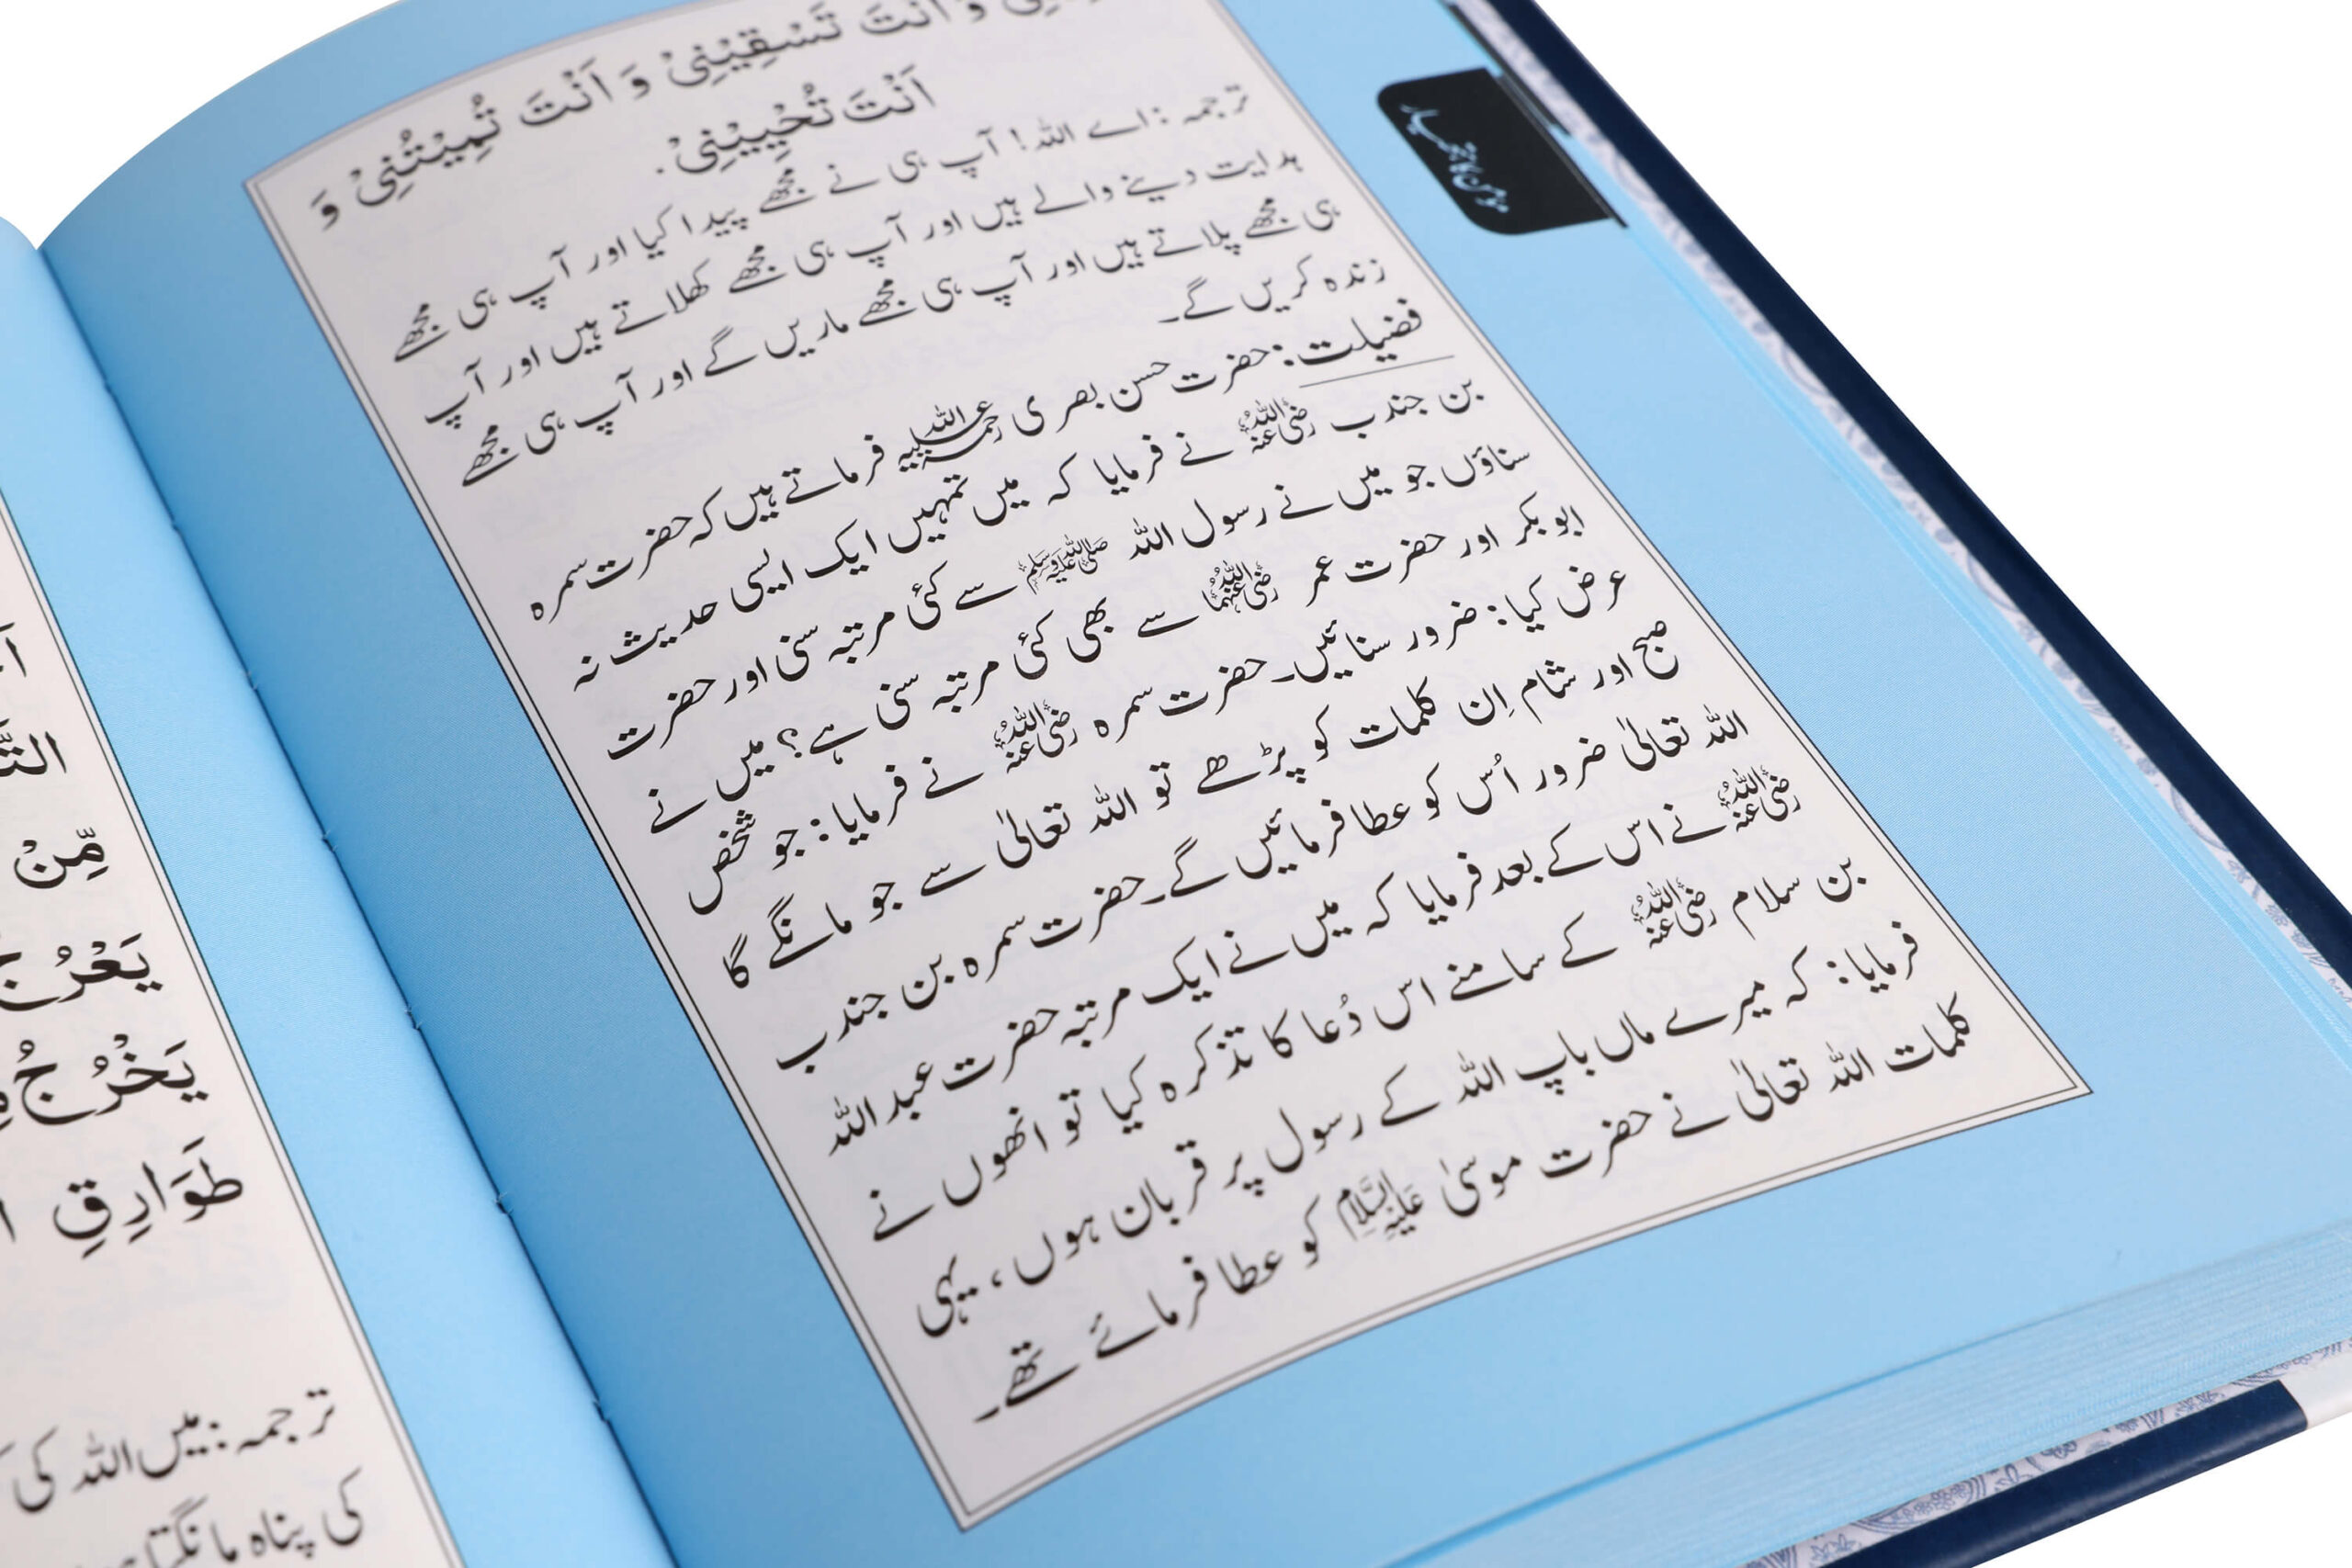 وَ اَنْتَ تَسْقِيْنِيْ وَ اَنْتَ تُمِيْتُنِيْ وَ
اَنْتَ تُحْيِيْنِيْ.
ترجمہ: اے اللہ! آپ ہی نے مجھے پیدا کیا اور آپ ہی مجھے
ہدایت دینے والے ہیں اور آپ ہی مجھے کھلاتے ہیں اور آپ
ہی مجھے پلاتے ہیں اور آپ ہی مجھے ماریں گے اور آپ ہی مجھے
زندہ کریں گے۔
فضیلت: حضرت حسن بصری رحمۃ اللہ علیہ فرماتے ہیں کہ حضرت سمرہ
بن جندب رضی اللہ عنہ نے فرمایا کہ میں تمہیں ایک ایسی حدیث نہ
سناؤں جو میں نے رسول اللہ صلی اللہ علیہ وسلم سے کئی مرتبہ سنی اور حضرت
ابوبکر اور حضرت عمر رضی اللہ عنہما سے بھی کئی مرتبہ سنی ہے؟ میں نے
عرض کیا: ضرور سنائیں۔ حضرت سمرہ رضی اللہ عنہ نے فرمایا: جو شخص
صبح اور شام اِن کلمات کو پڑھے تو اللہ تعالیٰ سے جو مانگے گا
اللہ تعالیٰ ضرور اُس کو عطا فرمائیں گے۔ حضرت سمرہ بن جندب
رضی اللہ عنہ نے اس کے بعد فرمایا کہ میں نے ایک مرتبہ حضرت عبد اللہ
بن سلام رضی اللہ عنہ کے سامنے اس دُعا کا تذکرہ کیا تو انھوں نے
فرمایا: کہ میرے ماں باپ اللہ کے رسول پر قربان ہوں، یہی
کلمات اللہ تعالیٰ نے حضرت موسیٰ علیہ السلام کو عطا فرمائے تھے۔
مؤمن کا ہتھیار
مِّنْ
يَعْرُجُ
يَخْرُجُ
طَوَارِقِ
ترجمہ: میں اللہ کی
کی پناہ مانگتا